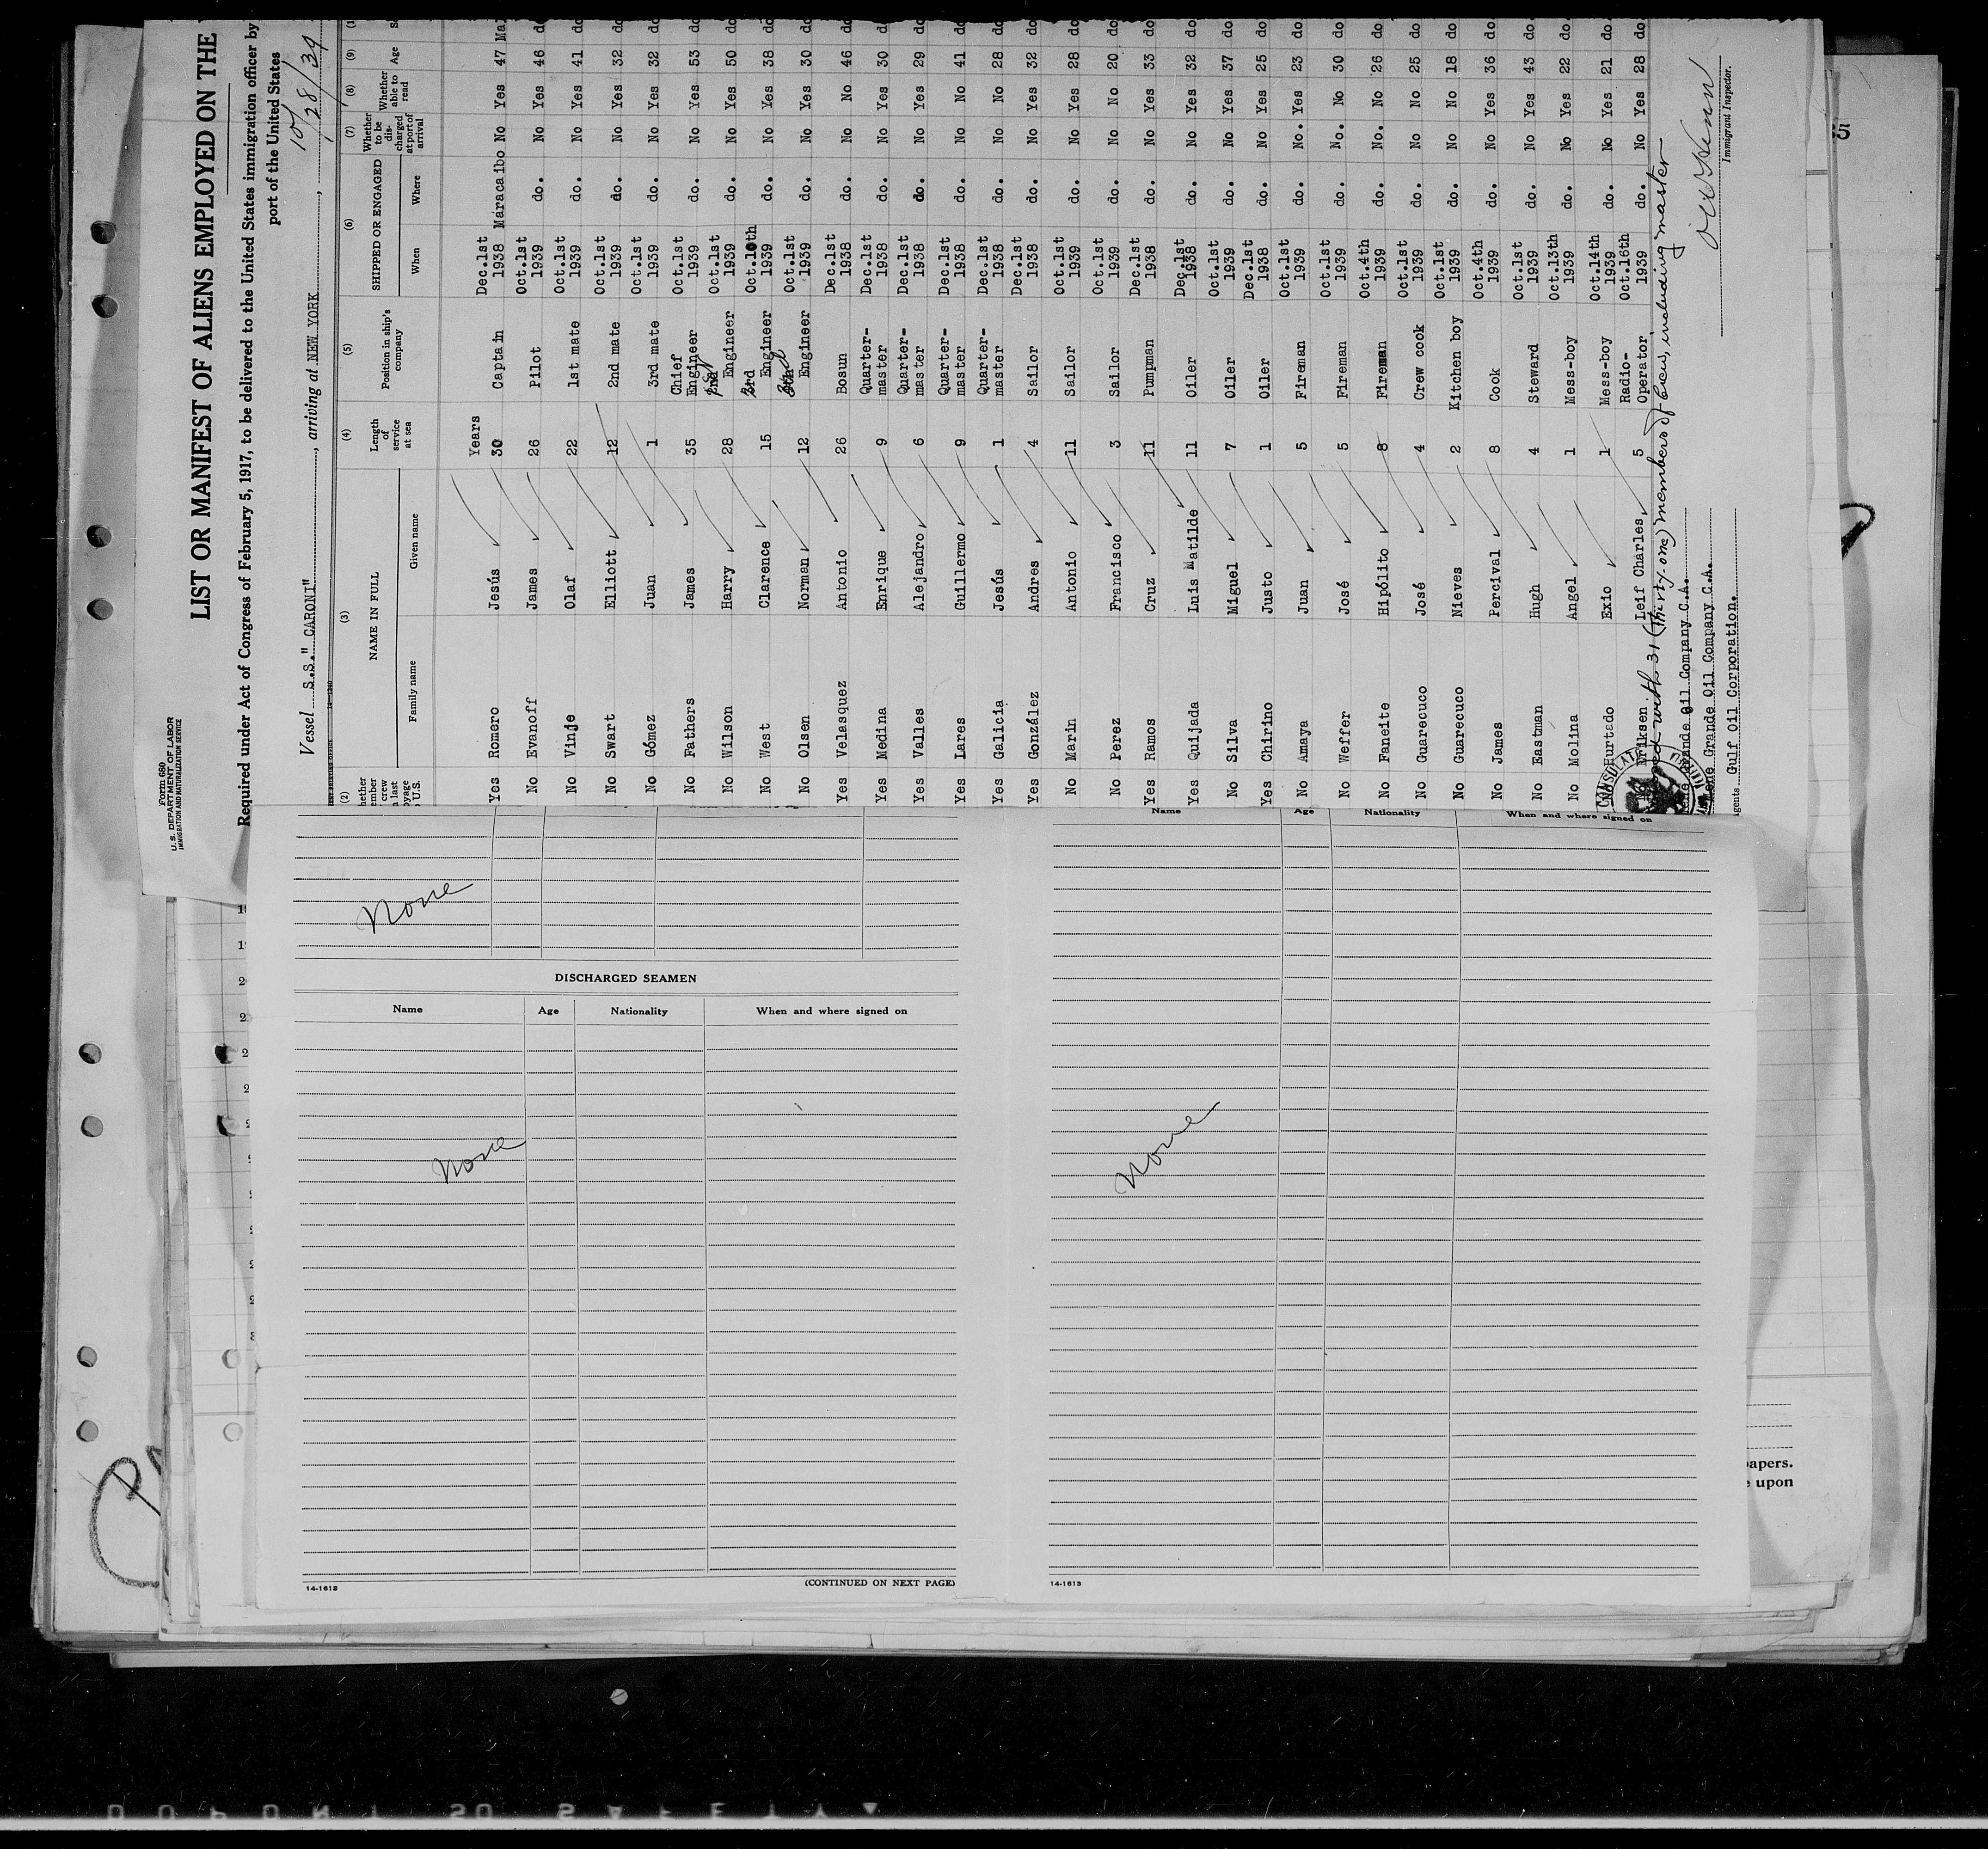 Form 680
U. S. DEPARTMENT OF LABOR
IMMIGRATION AND NATURALIZATION SERVICE
LIST OR MANIFEST OF ALIENS EMPLOYED ON THE
Required under Act of Congress of February 5, 1917, to be delivered to the United States immigration officer by
port of the United States
Vessel S.S." CARONI" , arriving at NEW YORK , 10/28/39
(2) (3) (4) (5) (6) (7) (8) (9)
NAME IN FULL Length of service at sea Position in ship's company SHIPPED OR ENGAGED Whether to be discharged at port of arrival Whether able to read Age
Family name Given name When Where
Years
Yes Romero Jesús 30 Captain Dec.1st 1938 Maracaibo No Yes 47 Mal
No Evanoff James 26 Pilot Oct.1st 1939 do. No Yes 46 do
No Vinje Olaf 22 1st mate Oct.1st 1939 do. No Yes 41 do
No Swart Elliott 12 2nd mate Oct.1st 1939 do. No Yes 32 do
No Gómez Juan 1 3rd mate Oct.1st 1939 do. No Yes 32 do
No Fathers James 35 Chief Engineer Oct.1st 1939 do. No Yes 53 do
No Wilson Harry 28 Engineer Oct.1st 1939 do. No Yes 50 do
No West Clarence 15 3rd Engineer Oct.10th 1939 do. No Yes 38 do
No Olsen Norman 12 Engineer Oct.1st 1939 do. No Yes 30 do
Yes Velasquez Antonio 26 Bosun Dec.1st 1938 do. No No 46 do
Yes Medina Enrique 9 Quarter-master Dec.1st 1938 do. No Yes 30 do
Yes Valles Alejandro 6 Quarter-master Dec.1st 1938 do. No Yes 29 do
Yes Lares Guillermo 9 Quarter-master Dec.1st 1938 do. No No 41 do
Yes Galicia Jesús 1 Quarter-master Dec.1st 1938 do. No No 28 do
Yes González Andres 4 Sailor Dec.1st 1938 do. No Yes 32 do
No Marin Antonio 11 Sailor Oct.1st 1939 do. No Yes 28 do
No Perez Francisco 3 Sailor Oct.1st 1939 do. No No 20 do
Yes Ramos Cruz 11 Pumpman Dec.1st 1938 do. No Yes 33 do
Yes Quijada Luis Matilde 11 Oiler Dec.1st 1938 do. No Yes 32 do
No Silva Miguel 7 Oiler Oct.1st 1939 do. No Yes 37 do
Yes Chirino Justo 1 Oiler Dec.1st 1938 do. No Yes 25 do
No Amaya Juan 5 Fireman Oct.1st 1939 do. No. Yes 23 do
No Weffer José 5 Fireman Oct.1st 1939 do. No. No 30 do
No Faneite Hipólito 8 Fireman Oct.4th 1939 do. No. No 26 do
No Guarecuco José 4 Crew cook Oct.1st 1939 do. No No 25 do
No Guarecuco Nieves 2 Kitchen boy Oct.1st 1939 do. No No 18 do
No James Percival 8 Cook Oct.4th 1939 do. No Yes 36 do
No Eastman Hugh 4 Steward Oct.1st 1939 do. No Yes 43 do
No Molina Angel 1 Mess-boy Oct.13th 1939 do. No Yes 22 do
No Hurtado Exio 1 Mess-boy Oct.14th 1939 do. No Yes 21 do
Eriksen. Leif Charles. 5 Radio-Operator Oct.16th 1939 do. No Yes 28 do
with 31 (thirty one) members of crew, including master
Grande Oil Company C.A.
Grande Oil Company C.A.
Gulf Oil Corporation.
Immigrant Inspector.
None
DISCHARGED SEAMEN
Name Age Nationality When and where signed on
None
14-1613
(CONTINUED ON NEXT PAGE)
Name Age Nationality When and where signed on
None
14-1613
apers.
upon